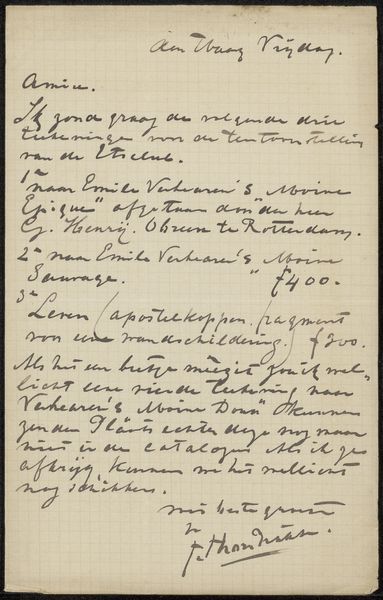 Aan den Haag Vrijdag.
Amice.
Ik zond graag de volgende drie
teekeningen voor de tentoonstelling
van de Etsclub.
1e naar Emile Verhaeren's Moine
Epique" afgestaan door de heer
Cg. Henrij. Obreen te Rotterdam.
2e naar Emile Verhaeren's Moine
Sauvage. " f400.-
3e Leven (apostelkoppen. fragment
van eene wandschildering.) f200.-
Als het een beetje meezit zou ik wel-
licht eene vierde teekening naar
Verhaeren's Moine Doux" kunnen
zenden Plaats echter deze nog maar
niet in de catalogus Als ik ze
afkrijg kunnen we het wellicht
nog schikken.
met beste groeten